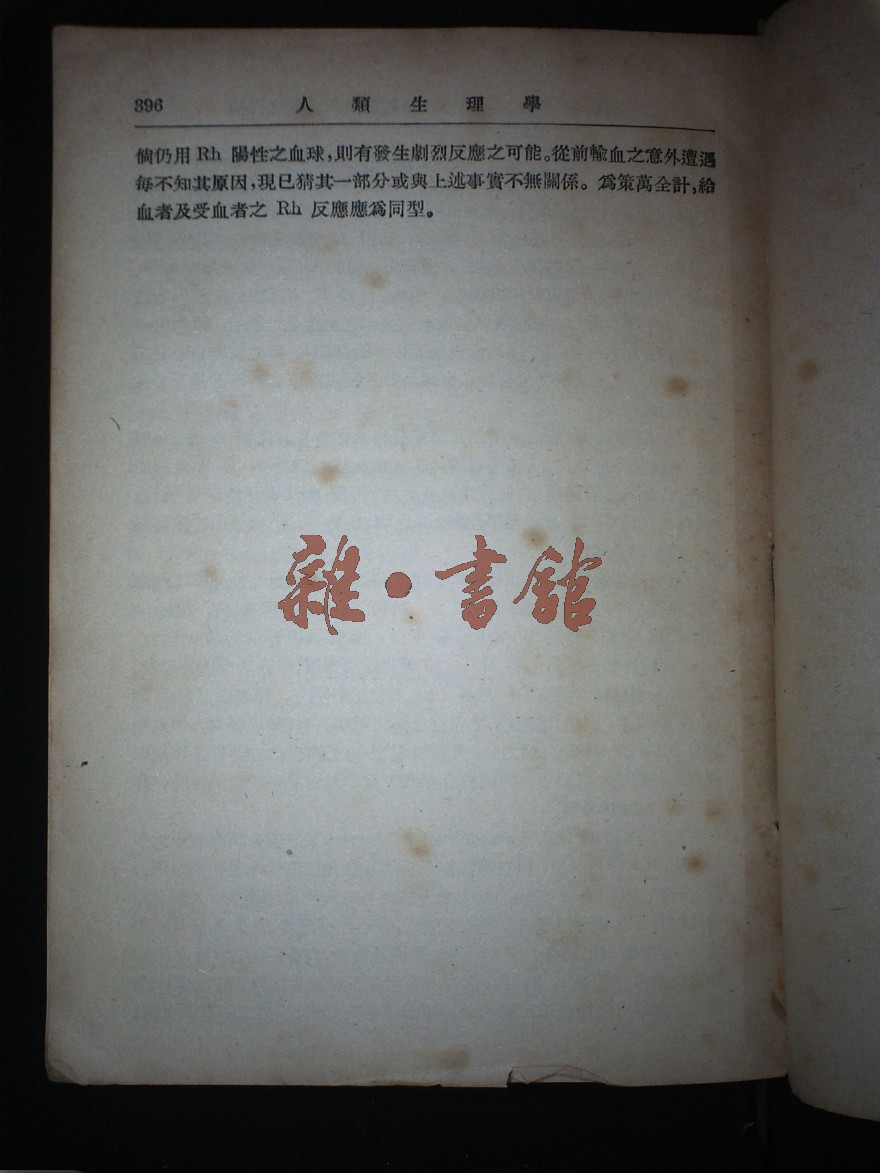 396 人類生理學
倘仍用 Rh 陽性之血球,則有發生劇烈反應之可能。從前輸血之意外遭遇
每不知其原因,現已猜其一部分或與上述事實不無關係。爲策萬全計,給
血者及受血者之 Rh 反應應爲同型。
雜·書館